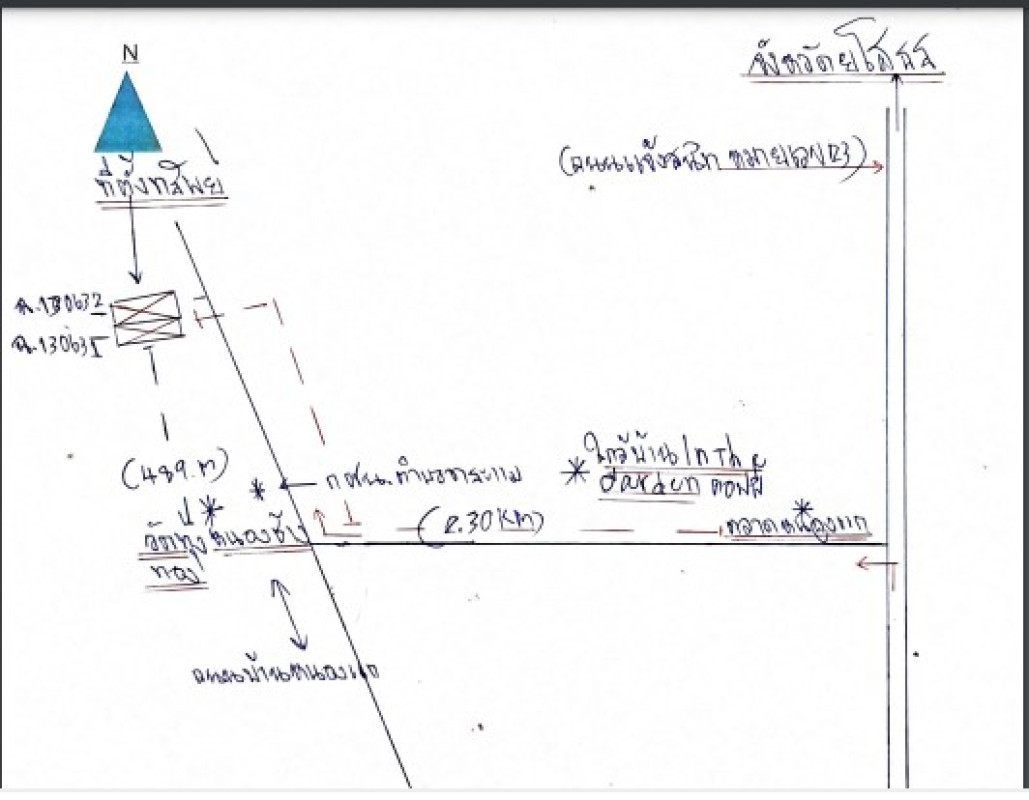 N
ที่ตั้งทรัพย์
จังหวัดยโสธร
(ถนนแจ้งสนิท หมายเลข 23)
ฉ.130632
ฉ.130631
(489.m)
กศน.ตำบลกระแชง
ใกล้บ้าน In The
Garden
(2.30 KM)
ตลาดหนองแก
วัดทุ่งหนองช้าง
ทอง
ถนนบ้านหนองแก